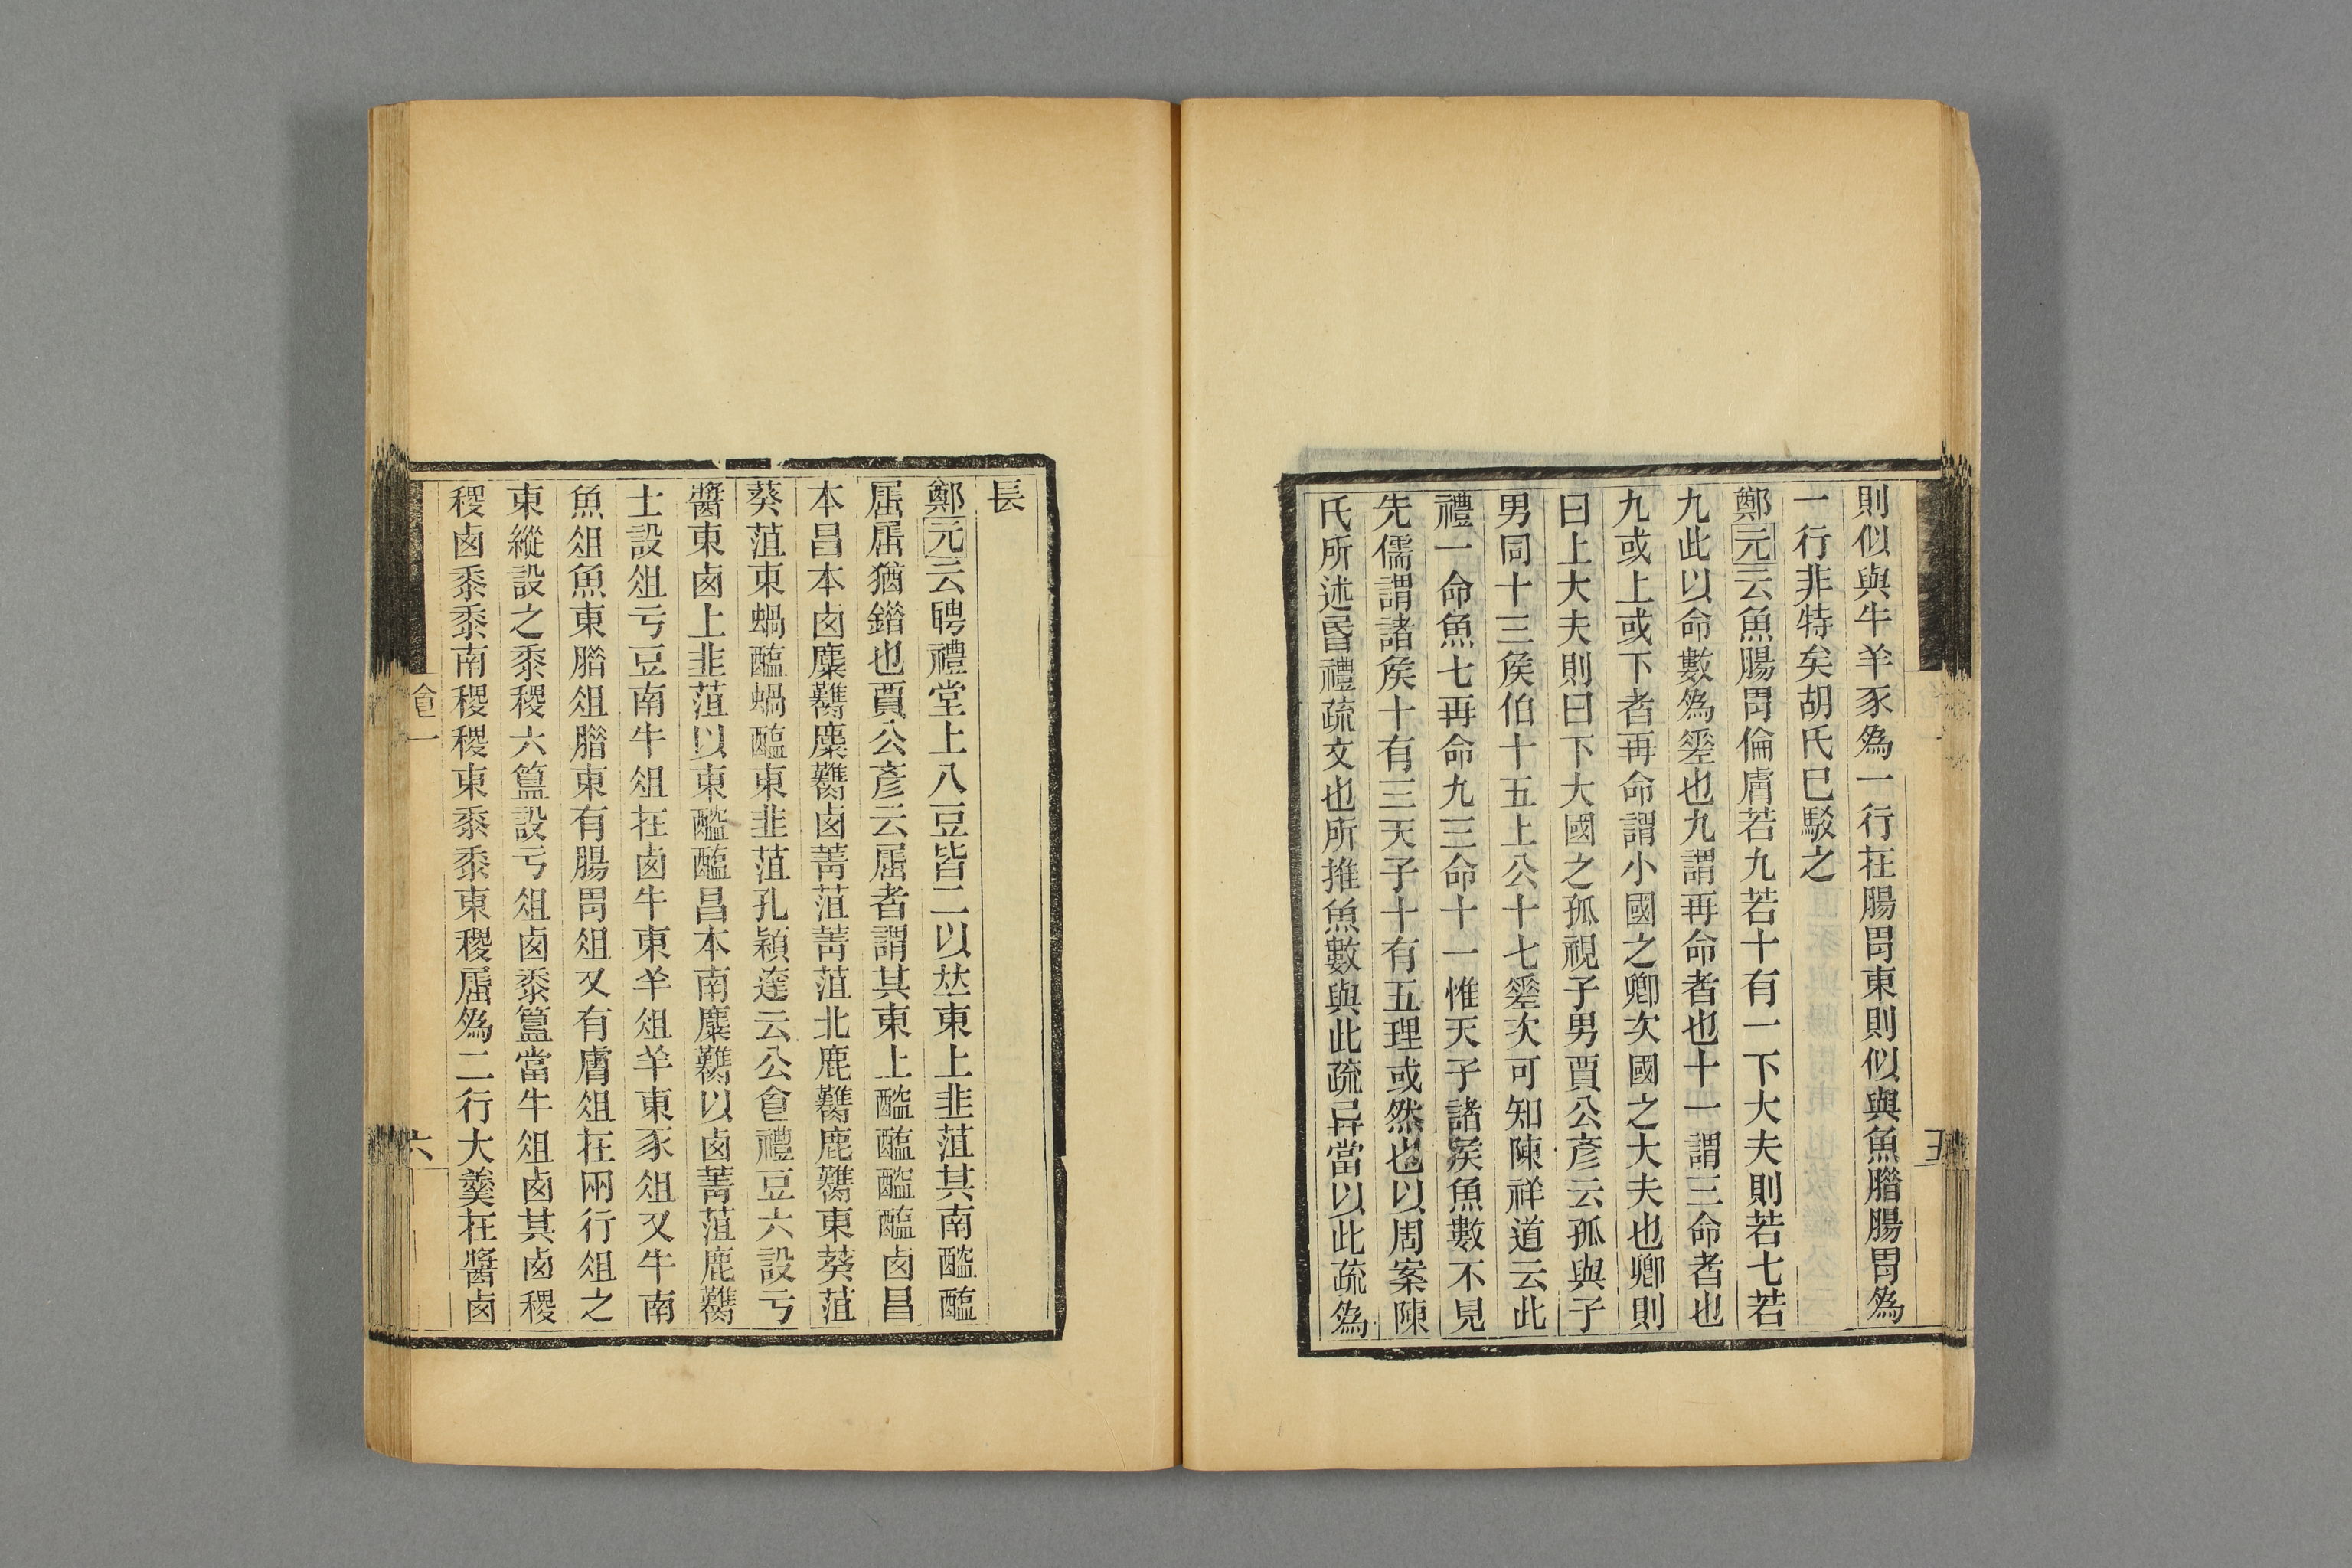 則似與牛羊豕爲一行在腸胃東則似與魚腊腸胃爲
一行非特矣胡氏巳駁之
鄭元云魚腸胃倫膚若九若十有一下大夫則若七若
九此以命數爲差也九謂再命者也十一謂三命者也
九或上或下者再命謂小國之卿次國之大夫也卿則
曰上大夫則曰下大國之孤視子男賈公彥云孤與子
男同十三矦伯十五上公十七差次可知陳祥道云此
禮一命魚七再命九三命十一惟天子諸矦魚數不見
先儒謂諸矦十有三天子十有五理或然也以周案陳
氏所述昏禮疏文也所推魚數與此疏异當以此疏爲
五
長
鄭元云聘禮堂上八豆皆二以竝東上韭菹其南醓醢
屈屈猶錯也賈公彥云屈者謂其東上醓醢醓醢鹵昌
本昌本鹵麋臡麋臡鹵菁菹菁菹北鹿臡鹿臡東葵菹
葵菹東蝸醢蝸醢東韭菹孔穎達云公食禮豆六設亏
醬東鹵上韭菹以東醓醢昌本南麋臡以鹵菁菹鹿臡
士設俎亏豆南牛俎在鹵牛東羊俎羊東豕俎又牛南
魚俎魚東腊俎腊東有腸胃俎又有膚俎在兩行俎之
東縱設之黍稷六簋設亏俎鹵黍簋當牛俎鹵其鹵稷
稷鹵黍黍南稷稷東黍黍東稷屈爲二行大羹在醬鹵
食一
六